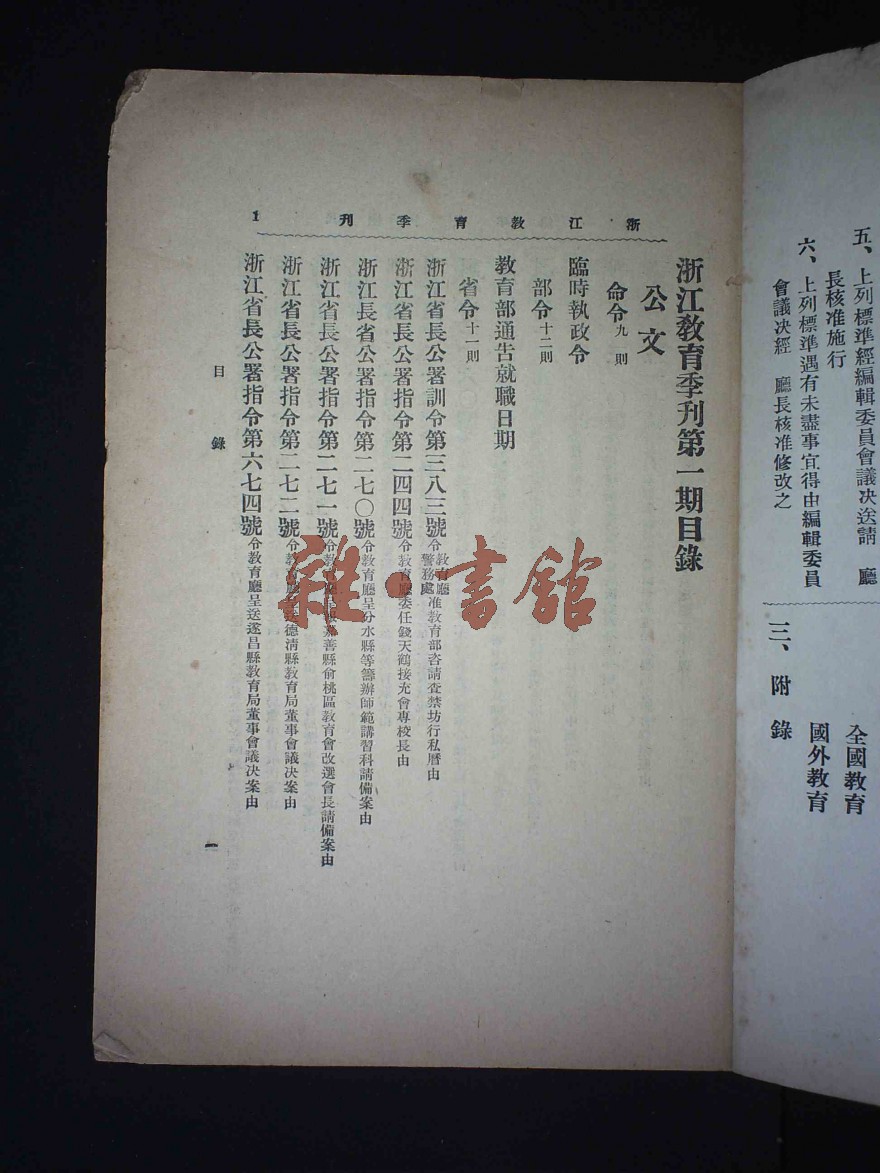 五、上列標準經編輯委員會議決送請　廳
長核准施行
六、上列標準遇有未盡事宜得由編輯委員
會議決經　廳長核准修改之
三、附錄
全國教育
國外教育
浙江教育季刊　1
浙江教育季刊第一期目錄
公文
命令九則
臨時執政令
部令十二則
教育部通告就職日期
省令十一則
浙江省長公署訓令第三八三號令教育廳警務處准教育部咨請查禁坊行私曆由
浙江省長公署指令第二四四號令教育廳委任錢天鶴接充會專校長由
浙江長省公署指令第二七〇號令教育廳呈分水縣等籌辦師範講習科請備案由
浙江省長公署指令第二七一號令教育廳呈嘉善縣俞桃區教育會改選會長請備案由
浙江省長公署指令第二七二號令教育廳呈送德清縣教育局董事會議決案由
浙江省長公署指令第六七四號令教育廳呈送遂昌縣教育局董事會議決案由
目錄
一
雜·書館